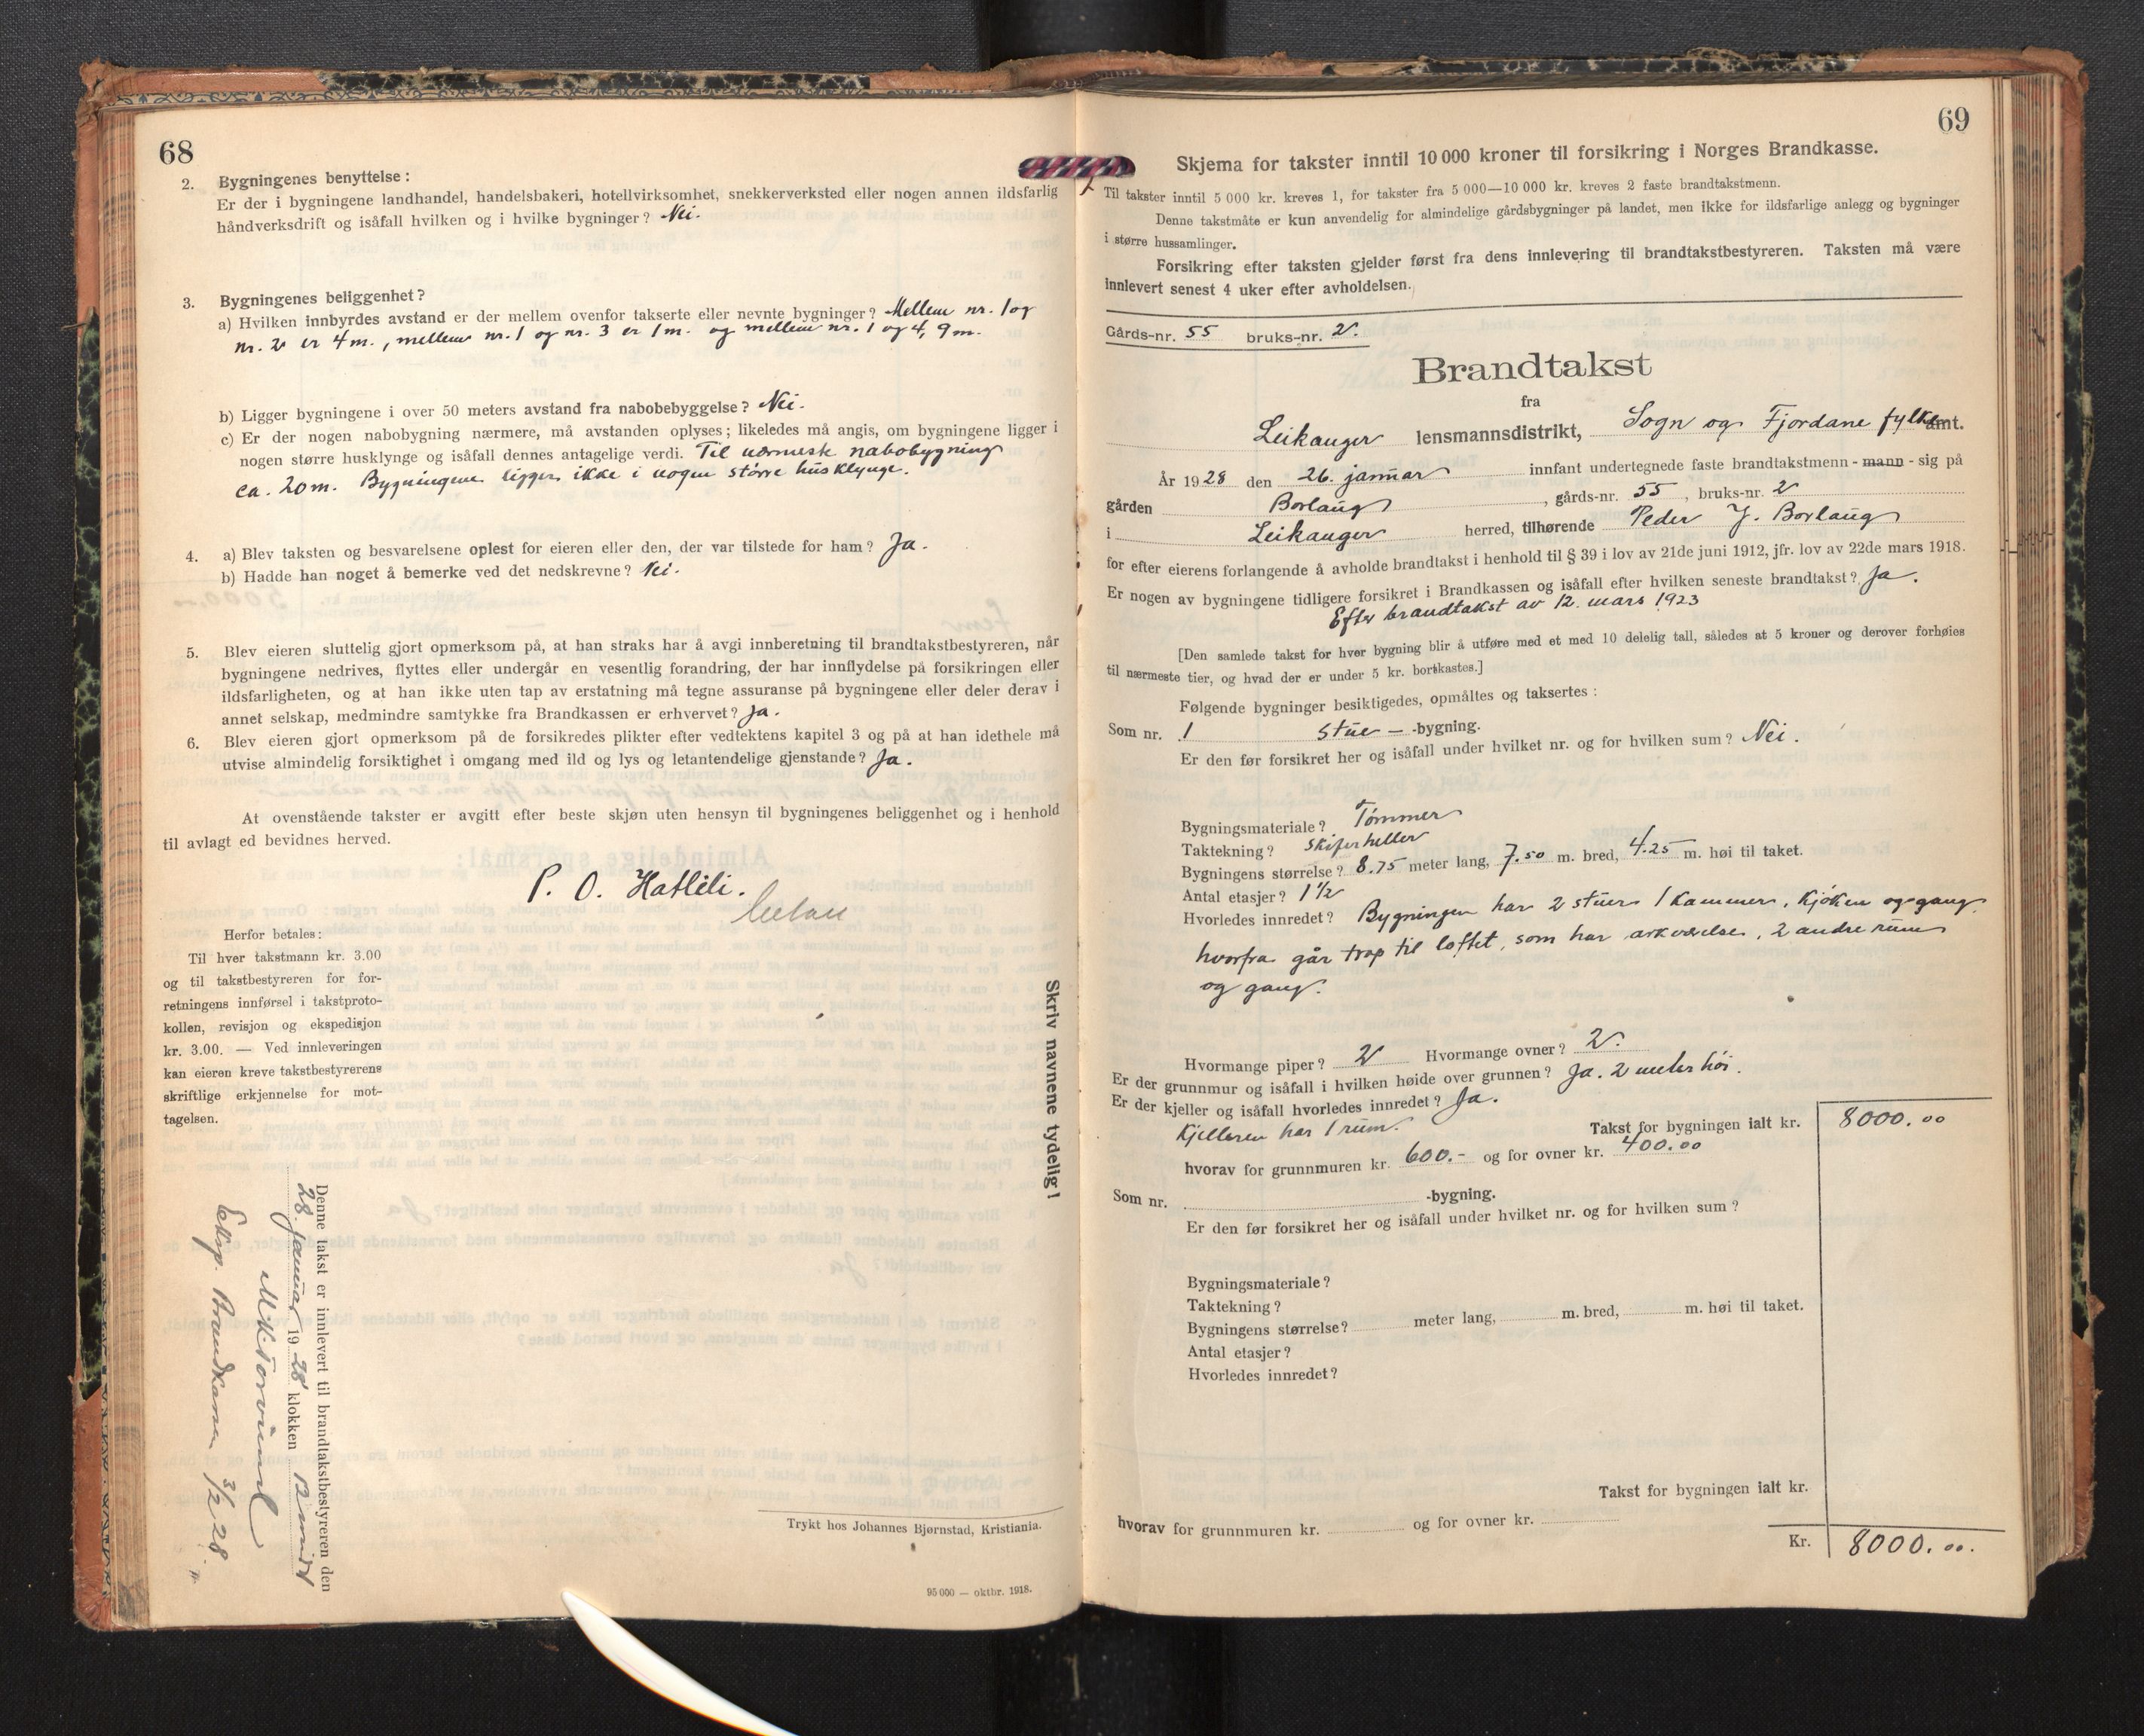 68
2. Bygningenes benyttelse:
Er der i bygningene landhandel, handelsbakeri, hotellvirksomhet, snekkerverksted eller nogen annen ildsfarlig
håndverksdrift og isåfall hvilken og i hvilke bygninger? Nei.
3. Bygningenes beliggenhet?
a) Hvilken innbyrdes avstand er der mellem ovenfor takserte eller nevnte bygninger? Mellem nr. 1 og
nr. 2 er 4 m., mellem nr. 1 og nr. 3 er 1 m. og mellem nr. 1 og 4, 9 m.
b) Ligger bygningene i over 50 meters avstand fra nabobebyggelse? Nei.
c) Er der nogen nabobygning nærmere, må avstanden oplyses; likeledes må angis, om bygningene ligger i
nogen større husklynge og isåfall dennes antagelige verdi. Til nærmeste nabobygning
ca. 20 m. Bygningene ligger ikke i nogen større husklynge.
4. a) Blev taksten og besvarelsene oplest for eieren eller den, der var tilstede for ham? Ja.
b) Hadde han noget å bemerke ved det nedskrevne? Nei.
5. Blev eieren sluttelig gjort opmerksom på, at han straks har å avgi innberetning til brandtakstbestyreren, når
bygningene nedrives, flyttes eller undergår en vesentlig forandring, der har innflydelse på forsikringen eller
ildsfarligheten, og at han ikke uten tap av erstatning må tegne assuranse på bygningene eller deler derav i
annet selskap, medmindre samtykke fra Brandkassen er erhvervet? Ja.
6. Blev eieren gjort opmerksom på de forsikredes plikter efter vedtektens kapitel 3 og på at han idethele må
utvise almindelig forsiktighet i omgang med ild og lys og letantendelige gjenstande? Ja.
At ovenstående takster er avgitt efter beste skjøn uten hensyn til bygningenes beliggenhet og i henhold
til avlagt ed bevidnes herved.
P. O. Hatleli.
Herfor betales:
Til hver takstmann kr. 3.00
og til takstbestyreren for for-
retningens innførsel i takstproto-
kollen, revisjon og ekspedisjon
kr. 3.00. — Ved innleveringen
kan eieren kreve takstbestyrerens
skriftlige erkjennelse for mot-
tagelsen.
Skriv navnene tydelig!
Denne takst er innlevert til brandtakstbestyreren den
28. januar 1928 klokken 12 middl
Eksp. Brandkassen 3/2 28.
Trykt hos Johannes Bjørnstad, Kristiania.
95 000 — oktbr. 1918.
69
Skjema for takster inntil 10 000 kroner til forsikring i Norges Brandkasse.
Til takster inntil 5 000 kr. kreves 1, for takster fra 5 000—10 000 kr. kreves 2 faste brandtakstmenn.
Denne takstmåte er kun anvendelig for almindelige gårdsbygninger på landet, men ikke for ildsfarlige anlegg og bygninger
i større hussamlinger.
Forsikring efter taksten gjelder først fra dens innlevering til brandtakstbestyreren. Taksten må være
innlevert senest 4 uker efter avholdelsen.
Gårds-nr. 55 bruks-nr. 2.
Brandtakst
fra
Leikanger lensmannsdistrikt, Sogn og Fjordane fylke amt.
År 1928 den 26. januar innfant undertegnede faste brandtakstmenn - mann - sig på
gården Borlaug, gårds-nr. 55, bruks-nr. 2
i Leikanger herred, tilhørende Peder J. Borlaug
for efter eierens forlangende å avholde brandtakst i henhold til § 39 i lov av 21de juni 1912, jfr. lov av 22de mars 1918.
Er nogen av bygningene tidligere forsikret i Brandkassen og isåfall efter hvilken seneste brandtakst? Ja.
Efter brandtakst av 12. mars 1923
[Den samlede takst for hver bygning blir å utføre med et med 10 delelig tall, således at 5 kroner og derover forhøies
til nærmeste tier, og hvad der er under 5 kr. bortkastes.]
Følgende bygninger besiktigedes, opmåltes og taksertes:
Som nr. 1 stue - -bygning.
Er den før forsikret her og isåfall under hvilket nr. og for hvilken sum? Nei.
Bygningsmateriale? Tømmer
Taktekning? Skiferheller
Bygningens størrelse? 8.75 meter lang, 7.50 m. bred, 4.25 m. høi til taket.
Antal etasjer? 1 1/2
Hvorledes innredet? Bygningen har 2 stuer 1 kammer, kjøken og gang
hvorfra går trap til loftet, som har arkværelse, 2 andre rum
og gang.
Hvormange piper? 2 Hvormange ovner? 2.
Er der grunnmur og isåfall i hvilken høide over grunnen? Ja. 2 meter høi.
Er der kjeller og isåfall hvorledes innredet? Ja.
Kjelleren har 1 rum.
Takst for bygningen ialt kr. 8000.00
hvorav for grunnmuren kr. 600.- og for ovner kr. 400.00
Som nr. -bygning.
Er den før forsikret her og isåfall under hvilket nr. og for hvilken sum?
Bygningsmateriale?
Taktekning?
Bygningens størrelse? meter lang, m. bred, m. høi til taket.
Antal etasjer?
Hvorledes innredet?
Takst for bygningen ialt kr.
hvorav for grunnmuren kr. og for ovner kr.
Kr. 8000.00.